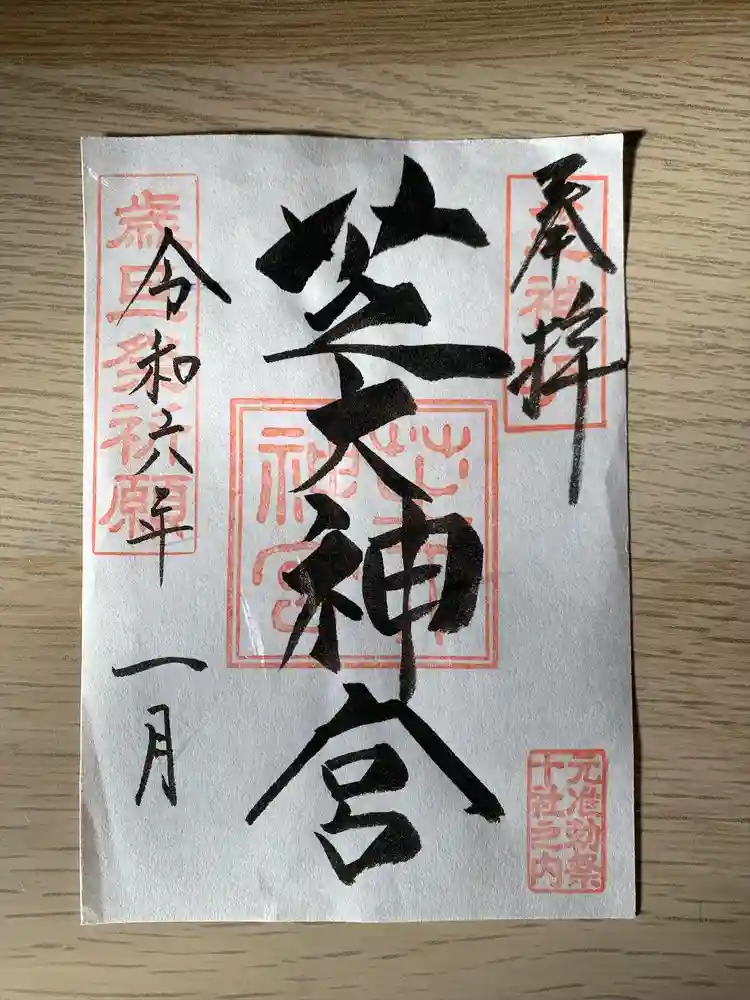 奉拝
芝大神宮
令和六年
一月
歳旦祭祈願
芝大神宮
元准勅祭
十社之内